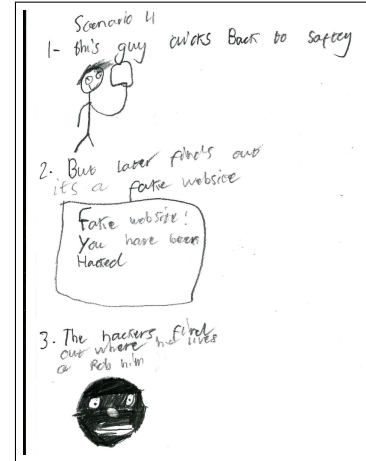 Scenario 4
1- this guy clicks Back to saftey
2. But later find's out
it's a fake website
Fake website!
You have been
Hacked
3. The hackers find
out where he lives
a Rob him